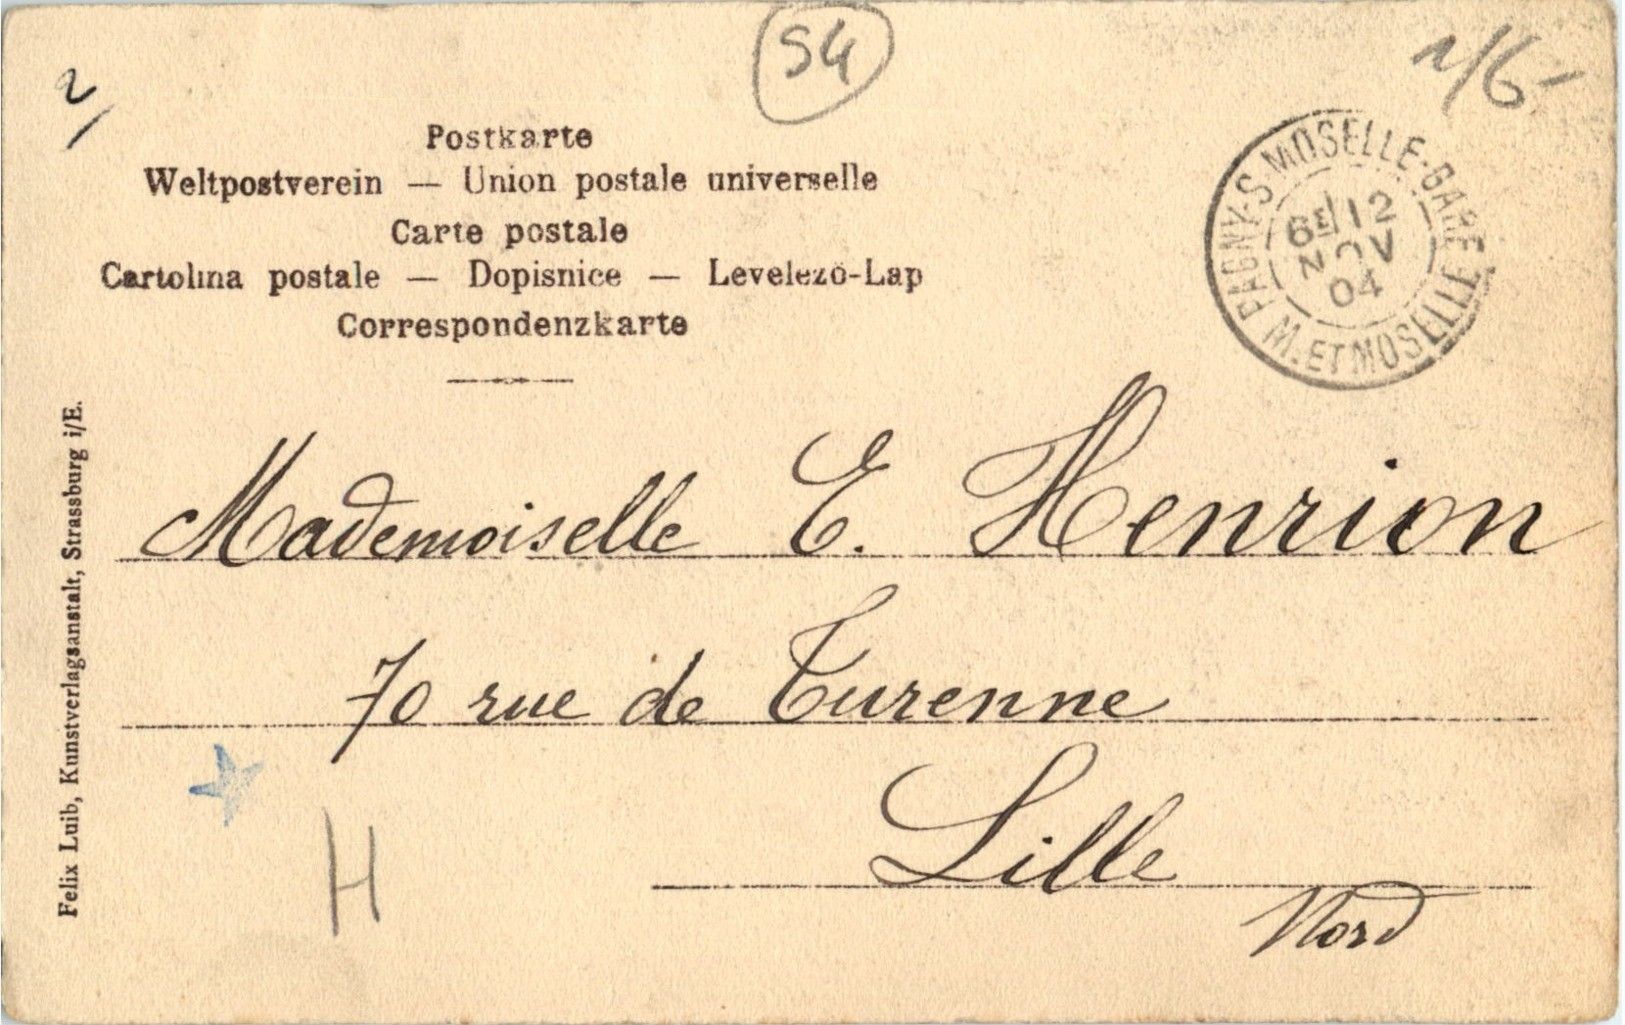 54
2/
Postkarte
Weltpostverein — Union postale universelle
Carte postale
Cartolina postale — Dopisnice — Levelezö-Lap
Correspondenzkarte
PAGNY-S-MOSELLE-GARE
6E 12
NOV
04
M. ET MOSELLE
Mademoiselle E. Henrion
70 rue de Turenne
Lille
Nord
H
Felix Luib, Kunstverlagsanstalt, Strassburg i/E.